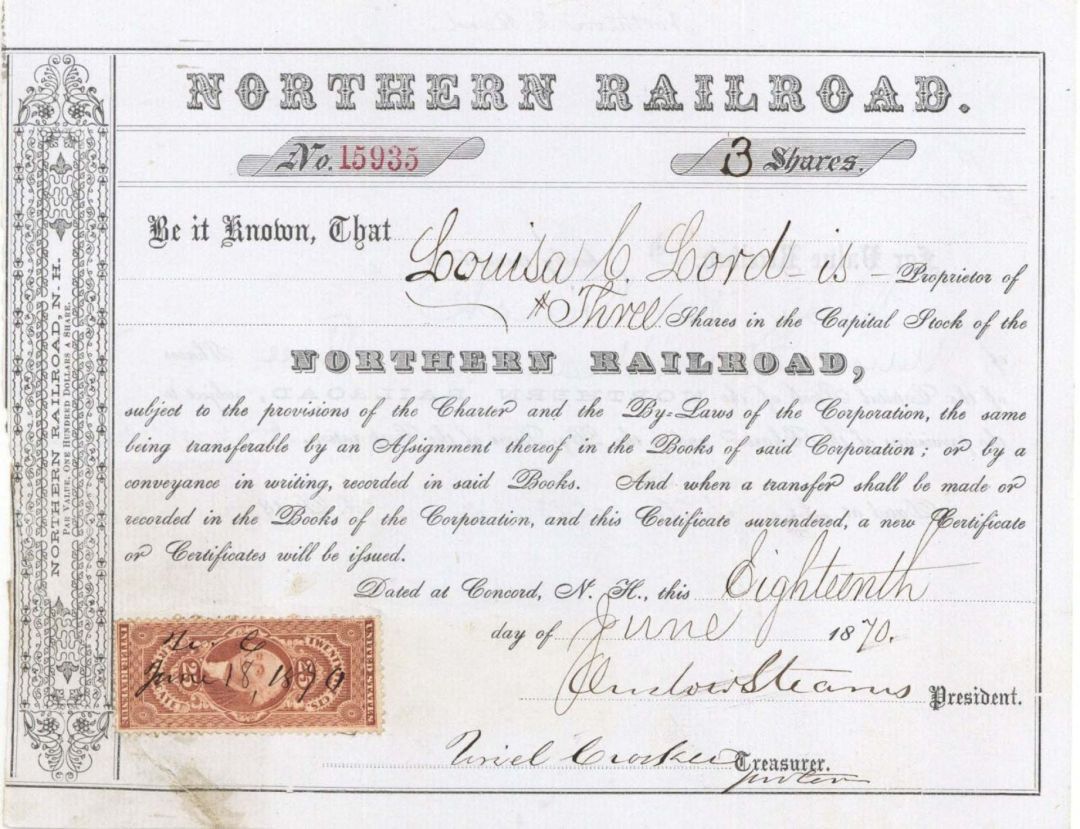 NORTHERN RAILROAD.
No. 15935
3 Shares.
Be it Known, That Louisa C. Lord is Proprietor of
Three Shares in the Capital Stock of the
NORTHERN RAILROAD,
subject to the provisions of the Charter and the By=Laws of the Corporation, the same
being transferable by an Assignment thereof in the Books of said Corporation; or by a
conveyance in writing, recorded in said Books. And when a transfer shall be made or
recorded in the Books of the Corporation, and this Certificate surrendered, a new Certificate
or Certificates will be issued.
Dated at Concord, N. H., this Eighteenth
day of June 1870.
Onslow Stearns President.
Uriel Crocker Treasurer.
NORTHERN RAILROAD, N. H.
PAR VALUE, ONE HUNDRED DOLLARS A SHARE.
INTER. REVENUE
25
25
CTS.
UNITED STATES
June 18, 1870